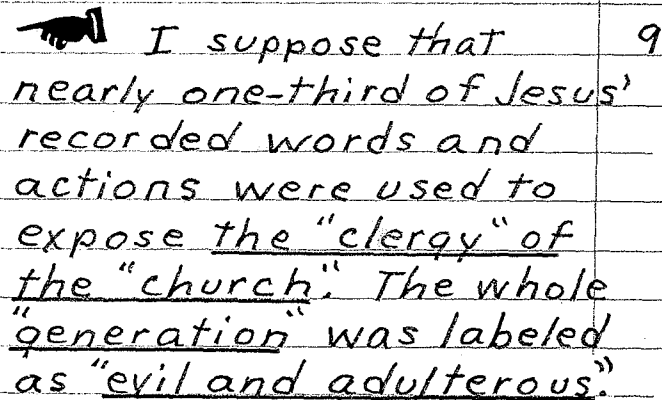 I suppose that 9
nearly one-third of Jesus'
recorded words and
actions were used to
expose the "clergy" of
the "church". The whole
"generation" was labeled
as "evil and adulterous."